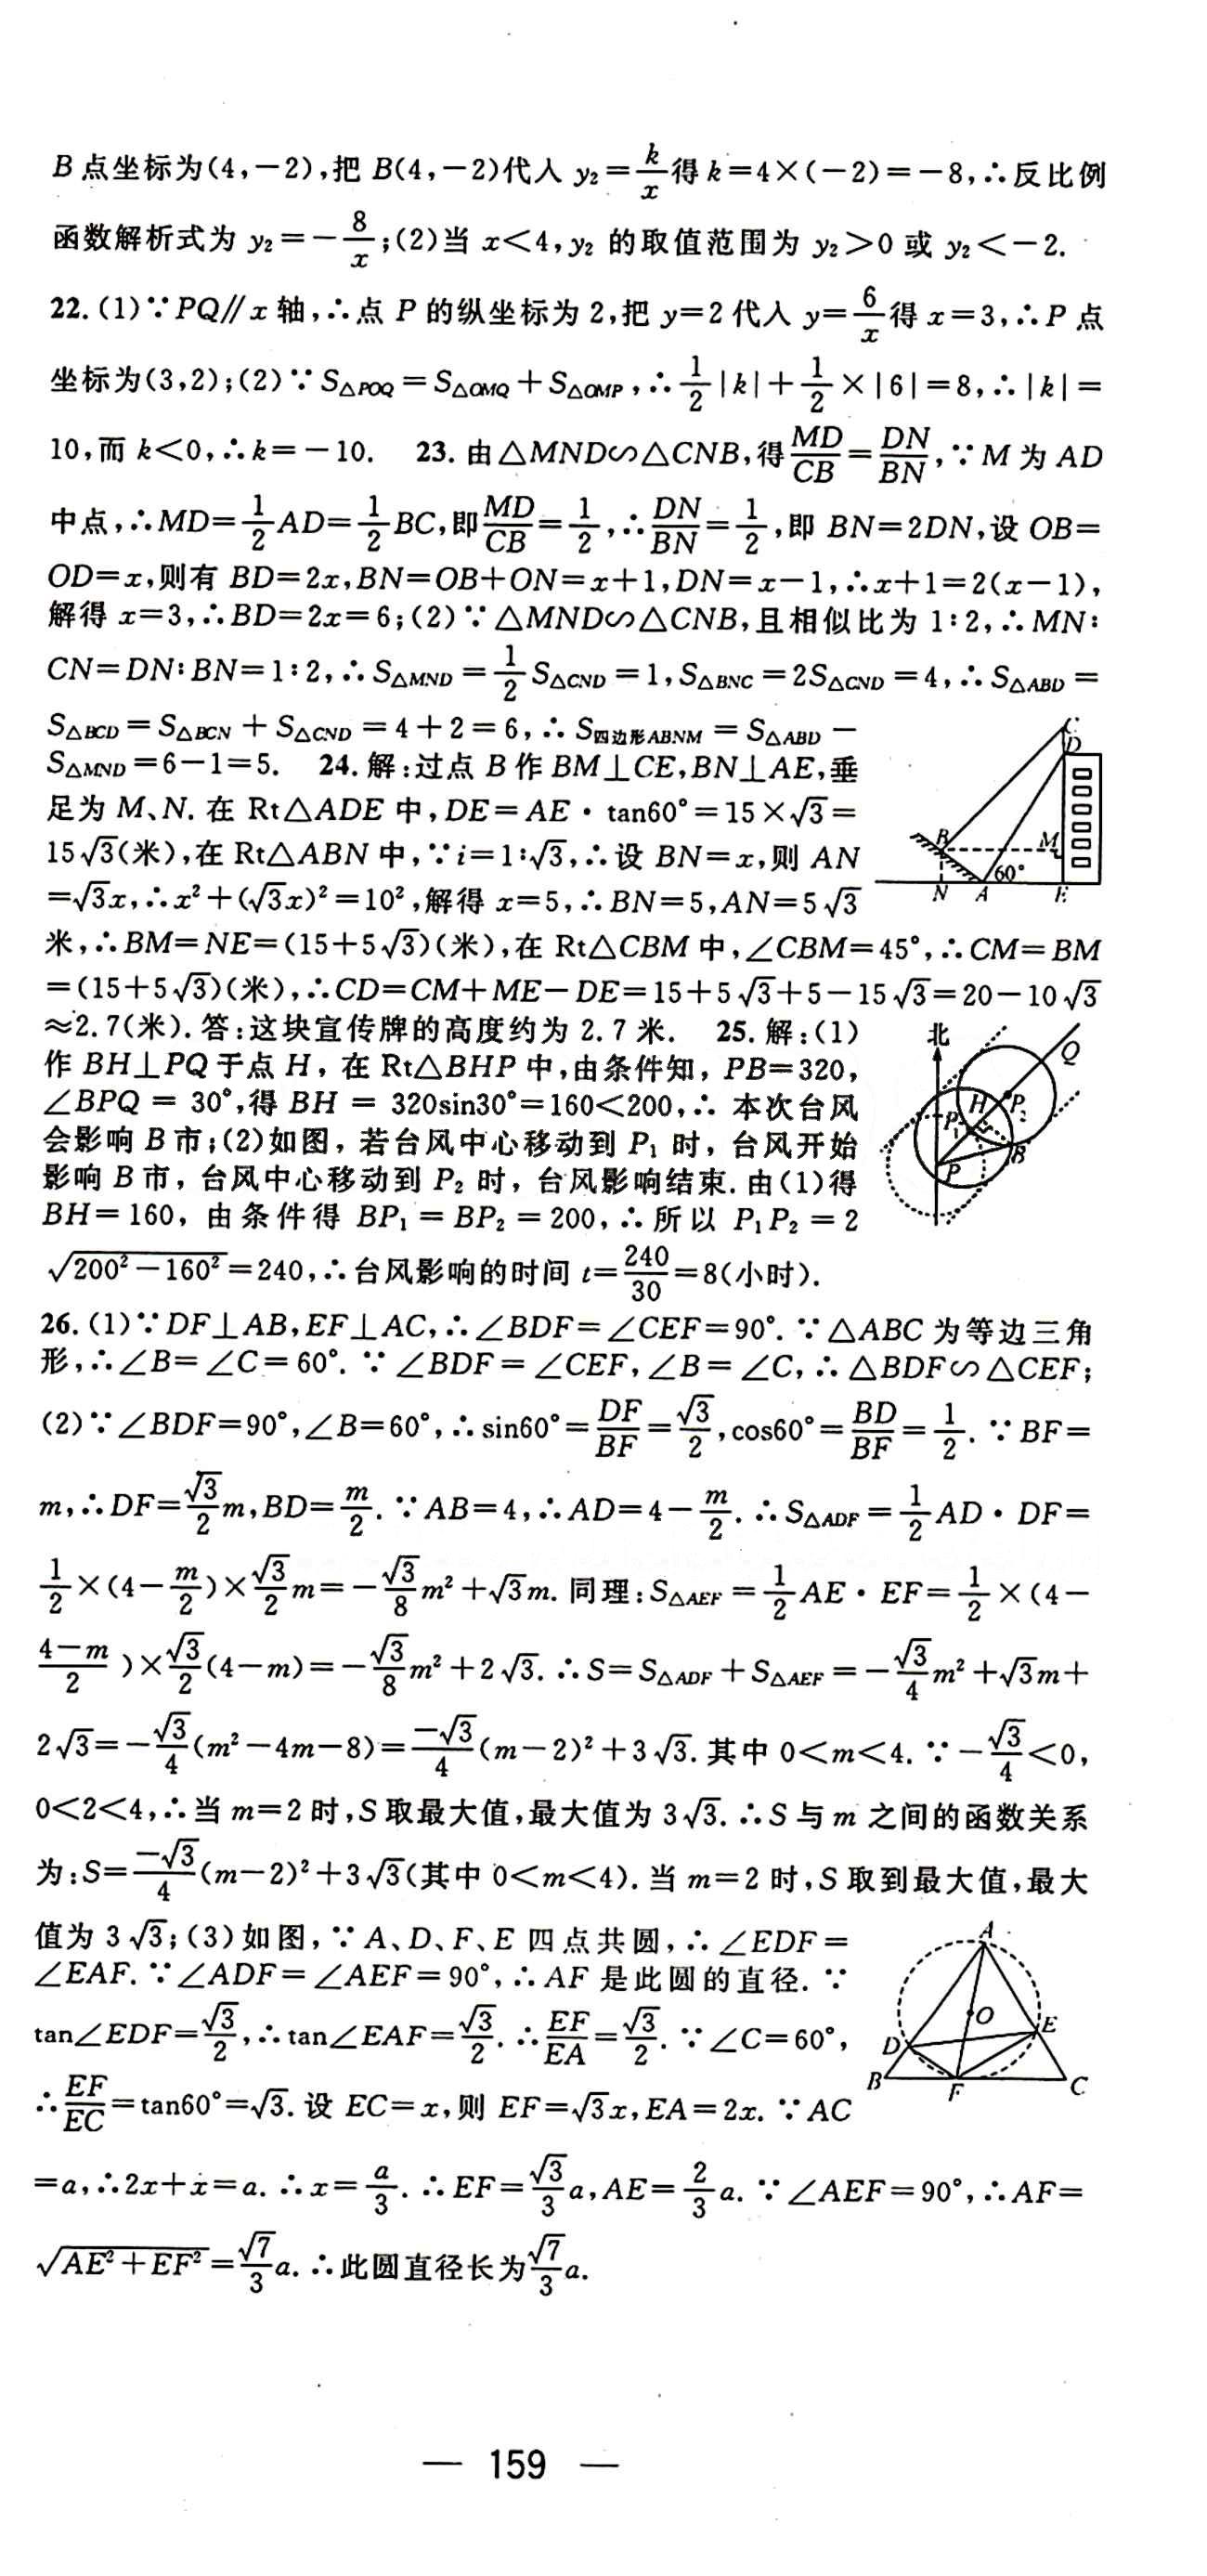 B点坐标为(4,-2),把B(4,-2)代入 y₂=k/x得k=4×(-2)=-8,∴反比例
函数解析式为 y₂=-8/x;(2)当 x<4,y₂ 的取值范围为 y₂>0 或 y₂<-2.
22.(1)∵PQ∥x轴,∴点 P 的纵坐标为 2,把 y=2 代入 y=6/x得 x=3,∴P 点
坐标为(3,2);(2)∵S△POQ=S△OMQ+S△OMP,∴1/2|k|+1/2×|6|=8,∴|k|=
10,而 k<0,∴k=-10. 23.由△MND∽△CNB,得MD/CB=DN/BN,∵M 为 AD
中点,∴MD=1/2AD=1/2BC,即MD/CB=1/2,∴DN/BN=1/2,即 BN=2DN,设 OB=
OD=x,则有 BD=2x,BN=OB+ON=x+1,DN=x-1,∴x+1=2(x-1),
解得 x=3,∴BD=2x=6;(2)∵△MND∽△CNB,且相似比为 1:2,∴MN:
CN=DN:BN=1:2,∴S△MND=1/2S△CND=1,S△BNC=2S△CND=4,∴S△ABD=
S△BCD=S△BCN+S△CND=4+2=6,∴S四边形ABNM=S△ABD-
S△MND=6-1=5. 24.解:过点 B 作 BM⊥CE,BN⊥AE,垂
足为 M、N.在 Rt△ADE 中,DE=AE·tan60°=15×√3=
15√3(米),在 Rt△ABN 中,∵i=1:√3,∴设 BN=x,则 AN
=√3x,∴x²+(√3x)²=10²,解得 x=5,∴BN=5,AN=5√3
米,∴BM=NE=(15+5√3)(米),在 Rt△CBM 中,∠CBM=45°,∴CM=BM
=(15+5√3)(米),∴CD=CM+ME-DE=15+5√3+5-15√3=20-10√3
≈2.7(米).答:这块宣传牌的高度约为 2.7 米. 25.解:(1)
作 BH⊥PQ于点 H,在 Rt△BHP 中,由条件知,PB=320,
∠BPQ=30°,得 BH=320sin30°=160<200,∴本次台风
会影响 B 市;(2)如图,若台风中心移动到 P₁ 时,台风开始
影响 B 市,台风中心移动到 P₂ 时,台风影响结束.由(1)得
BH=160,由条件得 BP₁=BP₂=200,∴所以 P₁P₂=2
√(200²-160²)=240,∴台风影响的时间 t=240/30=8(小时).
26.(1)∵DF⊥AB,EF⊥AC,∴∠BDF=∠CEF=90°.∵△ABC 为等边三角
形,∴∠B=∠C=60°.∵∠BDF=∠CEF,∠B=∠C,∴△BDF∽△CEF;
(2)∵∠BDF=90°,∠B=60°,∴sin60°=DF/BF=√3/2,cos60°=BD/BF=1/2.∵BF=
m,∴DF=√3/2m,BD=m/2.∵AB=4,∴AD=4-m/2.∴S△ADF=1/2AD·DF=
1/2×(4-m/2)×√3/2m=-√3/8m²+√3m.同理:S△AEF=1/2AE·EF=1/2×(4-
(4-m)/2)×√3/2(4-m)=-√3/8m²+2√3.∴S=S△ADF+S△AEF=-√3/4m²+√3m+
2√3=-√3/4(m²-4m-8)=-√3/4(m-2)²+3√3.其中 0<m<4.∵-√3/4<0,
0<2<4,∴当 m=2 时,S 取最大值,最大值为 3√3.∴S 与 m 之间的函数关系
为:S=-√3/4(m-2)²+3√3(其中 0<m<4).当 m=2 时,S 取到最大值,最大
值为 3√3;(3)如图,∵A、D、F、E 四点共圆,∴∠EDF=
∠EAF.∵∠ADF=∠AEF=90°,∴AF 是此圆的直径.∵
tan∠EDF=√3/2,∴tan∠EAF=√3/2.∴EF/EA=√3/2.∵∠C=60°,
∴EF/EC=tan60°=√3.设 EC=x,则 EF=√3x,EA=2x.∵AC
=a,∴2x+x=a.∴x=a/3.∴EF=√3/3a,AE=2/3a.∵∠AEF=90°,∴AF=
√(AE²+EF²)=√7/3a.∴此圆直径长为√7/3a.
C
D
B
M
60°
N A E
北
Q
H P₂
P₁
B
P
A
O
E
D
B F C
— 159 —